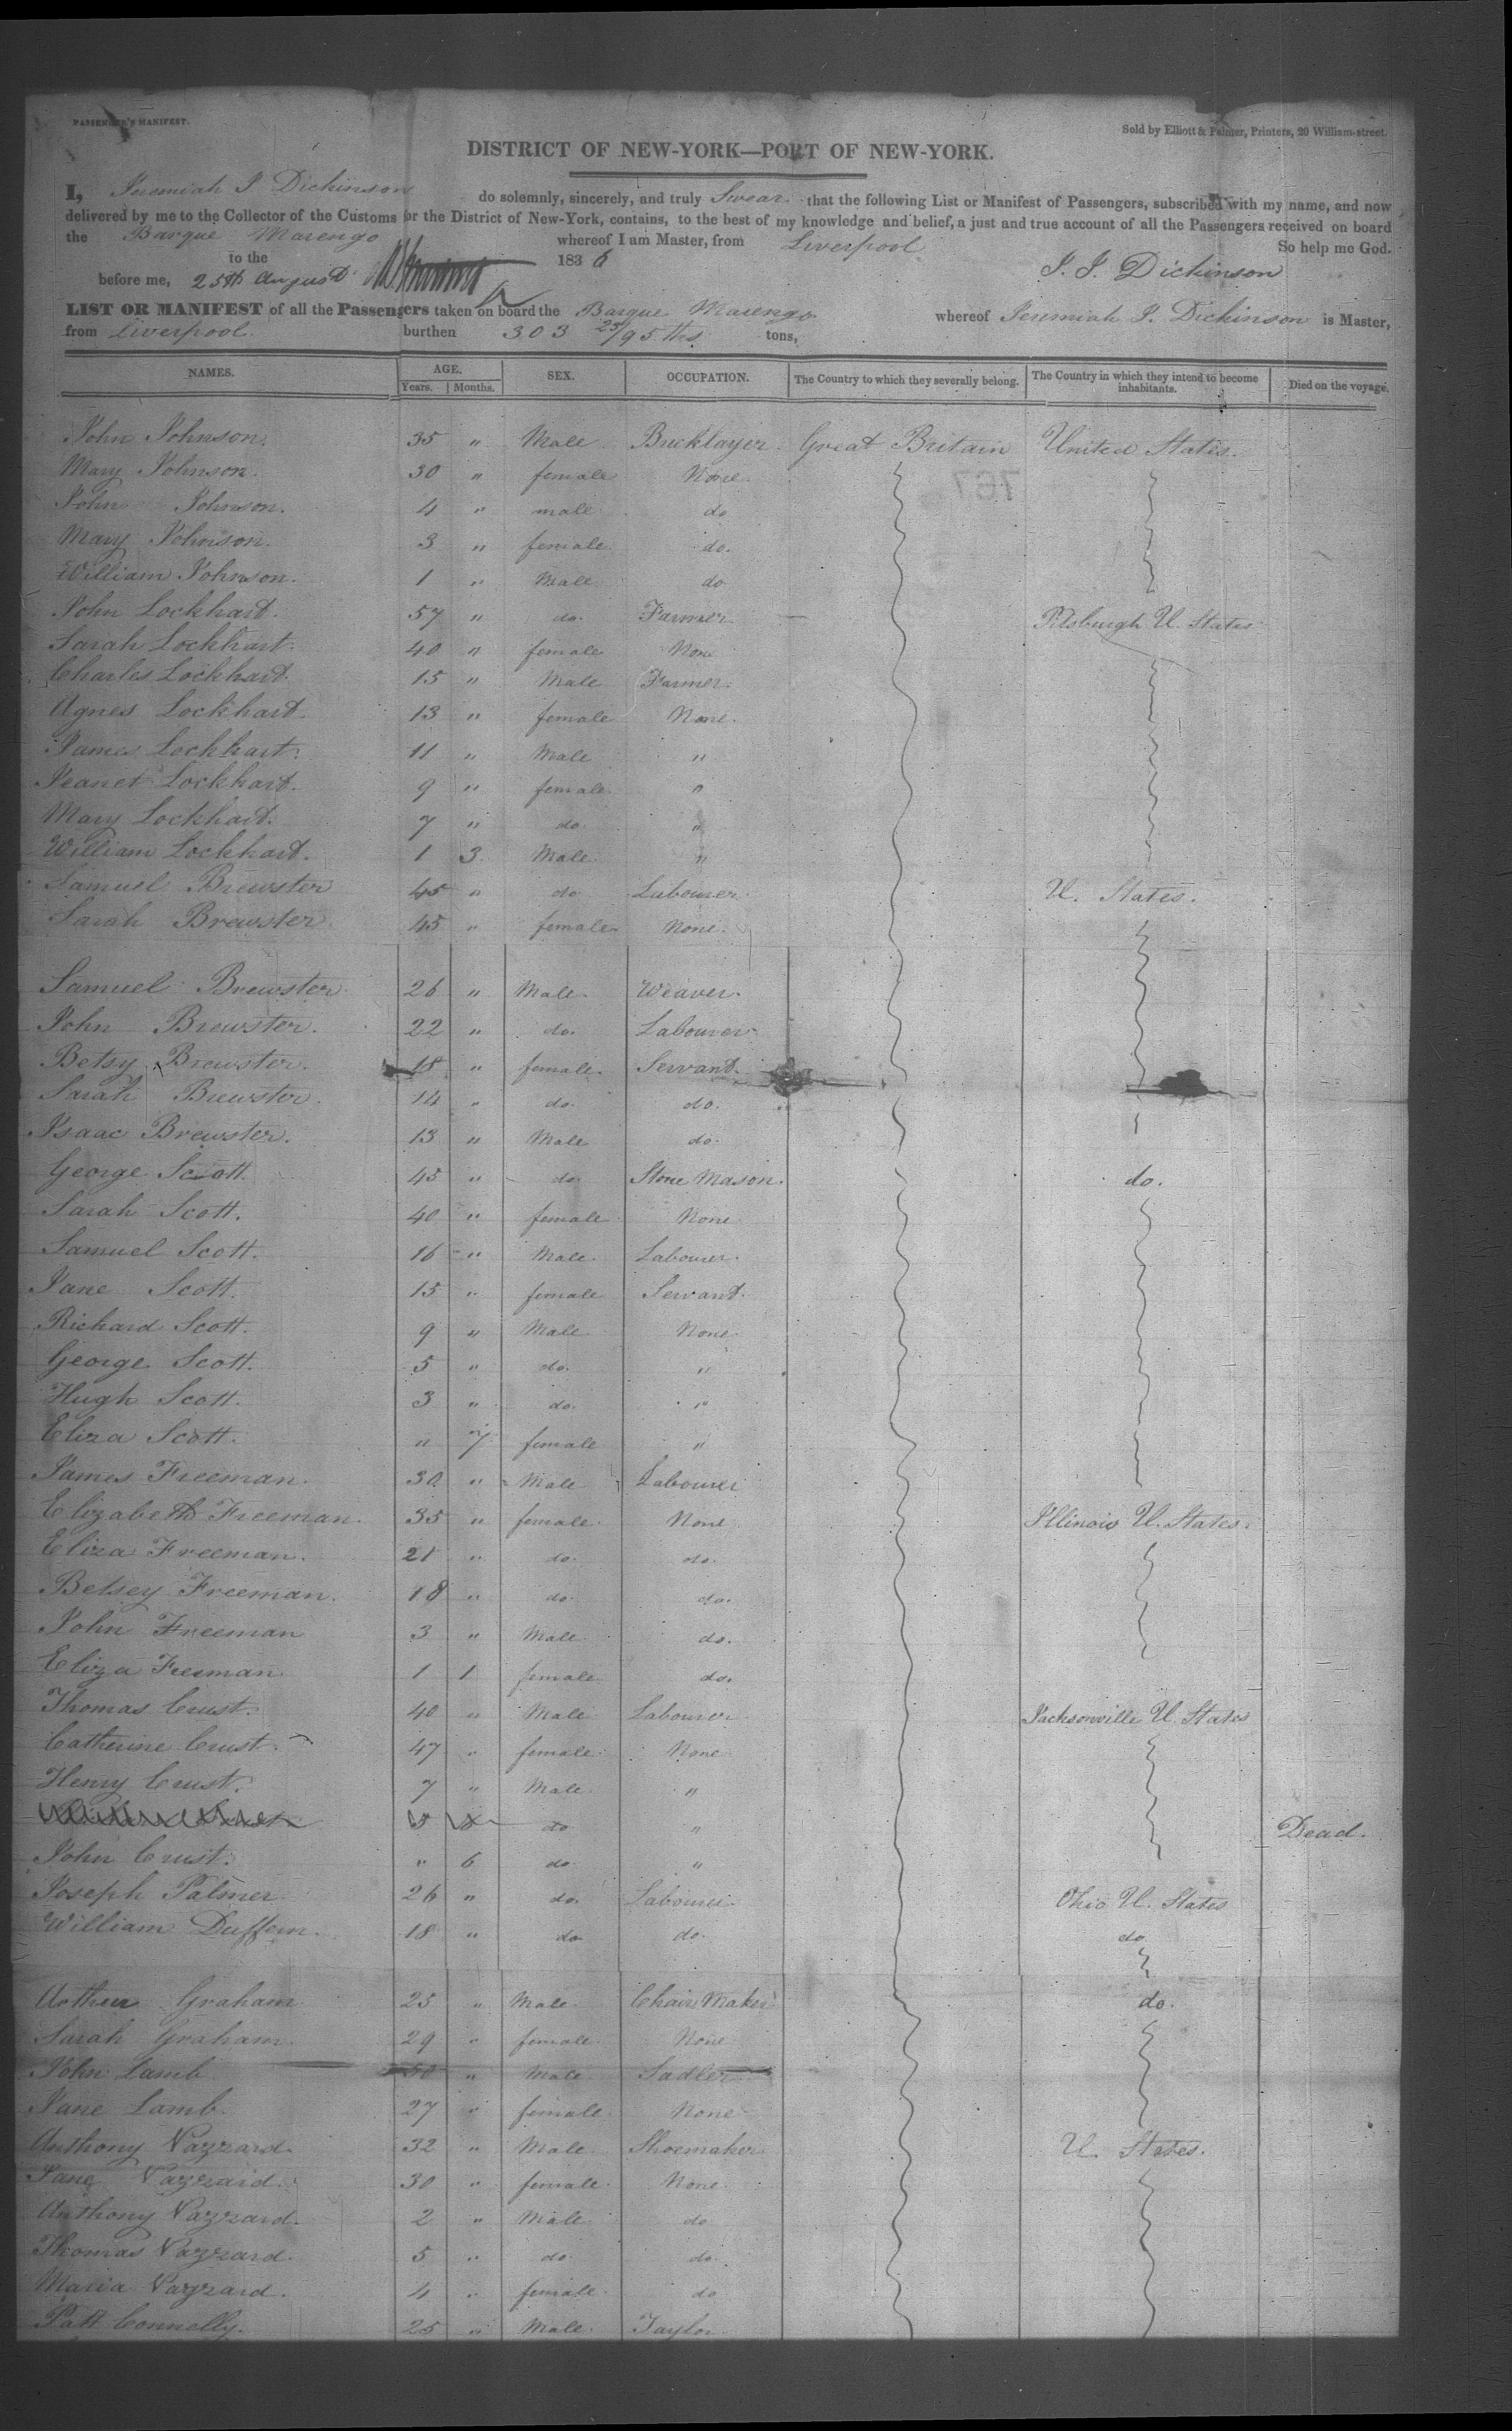 PASSENGER'S MANIFEST.
Sold by Elliott & Palmer, Printers, 20 William-street.
DISTRICT OF NEW-YORK—PORT OF NEW-YORK.
I, Jeremiah J Dickinson do solemnly, sincerely, and truly Swear that the following List or Manifest of Passengers, subscribed with my name, and now
delivered by me to the Collector of the Customs for the District of New-York, contains, to the best of my knowledge and belief, a just and true account of all the Passengers received on board
the Barque Marengo whereof I am Master, from Liverpool So help me God.
to the 1836
before me, 25th August J. J. Dickinson
LIST OR MANIFEST of all the Passengers taken on board the Barque Marengo whereof Jeremiah J. Dickinson is Master,
from Liverpool. burthen 303 25/95ths tons,
NAMES. AGE. SEX. OCCUPATION. The Country to which they severally belong. The Country in which they intend to become inhabitants. Died on the voyage.
Years. Months.
John Johnson. 35 " Male Bricklayer Great Britain United States.
Mary Johnson. 30 " female None.
John Johnson. 4 " male do
Mary Johnson. 3 " female do.
William Johnson. 1 " Male do
John Lockhart. 57 " do. Farmer Pitsburgh U. States
Sarah Lockhart. 40 " female None
Charles Lockhart. 15 " Male Farmer.
Agnes Lockhart. 13 " female None.
James Lockhart. 11 " Male "
Jeanet Lockhart. 9 " female "
Mary Lockhart. 7 " do. "
William Lockhart. 1 3 Male "
Samuel Brewster 45 " do Labourer U. States.
Sarah Brewster 45 " female None.
Samuel Brewster. 26 " Male. Weaver.
John Brewster. 22 " do. Labourer
Betsy Brewster. 18 " female. Servant.
Sarah Brewster. 14 " do. do.
Isaac Brewster. 13 " Male do.
George Scott. 45 " do Stone Mason. do.
Sarah Scott. 40 " female None
Samuel Scott. 16 " Male. Labourer.
Jane Scott. 15 " female Servant.
Richard Scott. 9 " Male. None
George Scott. 5 " do. "
Hugh Scott. 3 " do. "
Eliza Scott. " 7 female "
James Freeman. 30 " Male Labourer
Elizabeth Freeman. 35 " female. None Illinois U. States.
Eliza Freeman. 21 " do. do.
Betsey Freeman. 18 " do. do.
John Freeman 3 " Male do.
Eliza Freeman 1 1 female do.
Thomas Crust. 40 " Male Labourer Jacksonville U. States
Catherine Crust. 47 " female. None
Henry Crust. 7 " Male. "
5 do " Dead.
John Crust. " 6 do "
Joseph Palmer. 26 " do. Labourer. Ohio U. States
William Duffern. 18 " do do. do
Arthur Graham 25 " Male. Chair Maker do.
Sarah Graham. 29 " female. None
John Lamb 50 " Male. Sadler
Jane Lamb. 27 " female. None
Anthony Vazzard. 32 " Male. Shoemaker U. States.
Jane Vazzard. 30 " female. None.
Anthony Vazzard. 2 " Male do
Thomas Vazzard. 5 " do. do.
Maria Vazzard. 4 " female. do
Patt Connelly. 25 " Male. Taylor